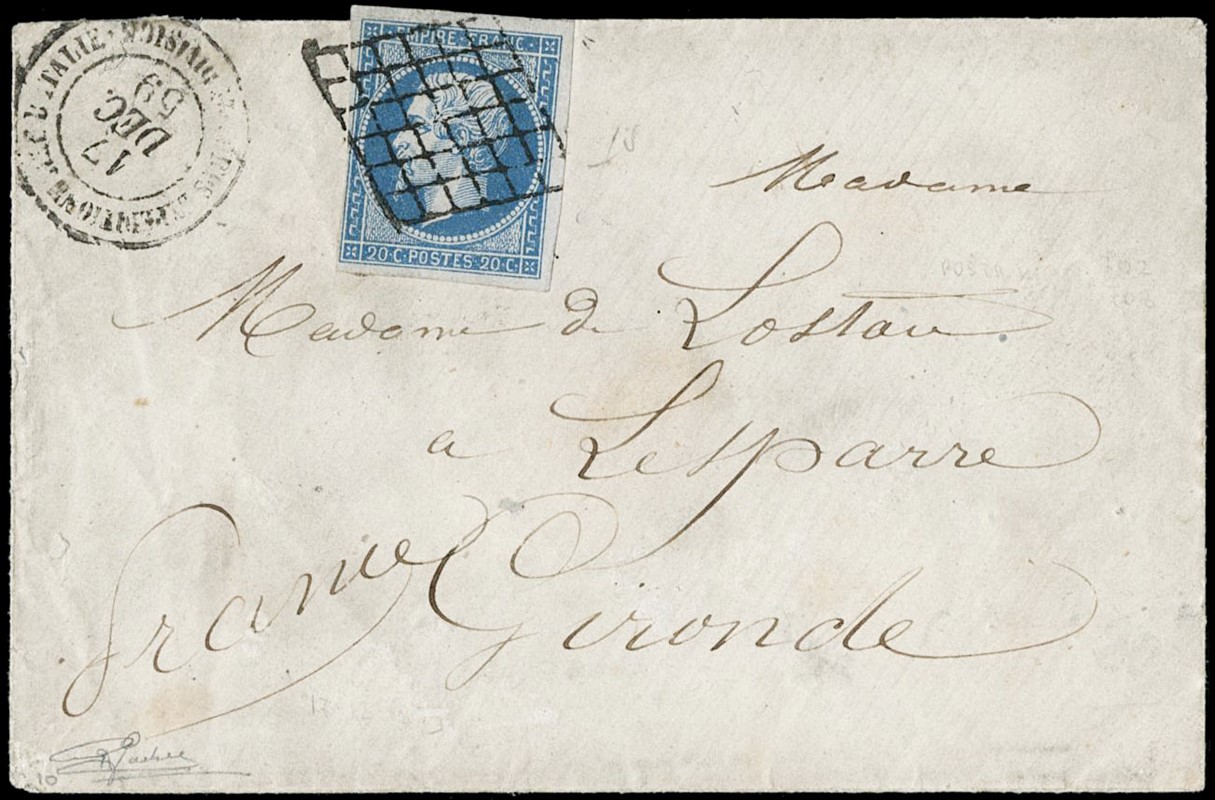 17
DEC
59
EMPIRE FRANC.
20·C·POSTES·20·C·
Madame
Madame de Lostau
a Lesparre
France Gironde